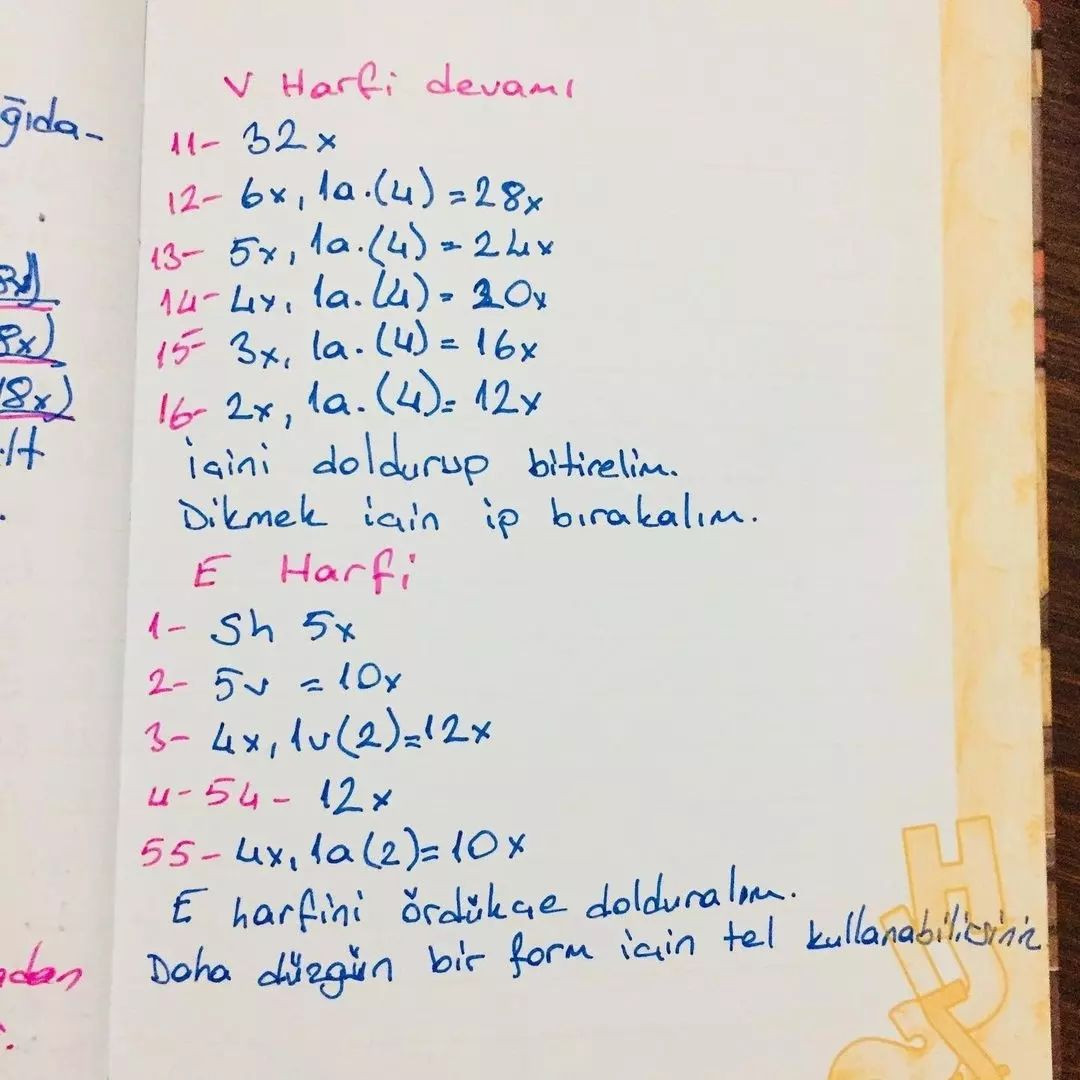 ğıda-
8x)
18x)
V Harfi devamı
11- 32x
12- 6x, 1a.(4) = 28x
13- 5x, 1a.(4) = 24x
14- 4x, 1a.(4) = 20x
15- 3x, 1a.(4) = 16x
16- 2x, 1a.(4) = 12x
içini doldurup bitirelim.
Dikmek için ip bırakalım.
E Harfi
1- Sh 5x
2- 5v = 10x
3- 4x, 1v(2)=12x
4-54- 12x
55- 4x, 1a(2)=10x
E harfini ördükçe dolduralım.
Daha düzgün bir form için tel kullanabilirsiniz